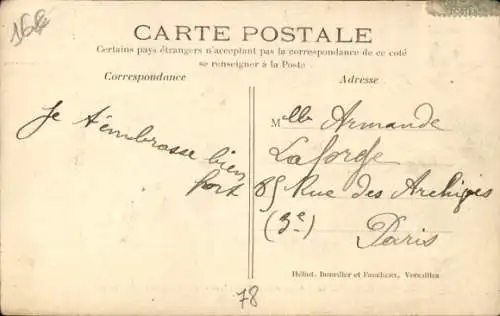 168
CARTE POSTALE
Certains pays étrangers n'acceptant pas la correspondance de ce coté
se renseigner à la Poste
Correspondance
Adresse
Je t'embrasse bien
fort
Mlle Armande
Laforge
85 Rue des Archives
(3e)
Paris
Héliot. Bourdier et Faucheux, Versailles
78